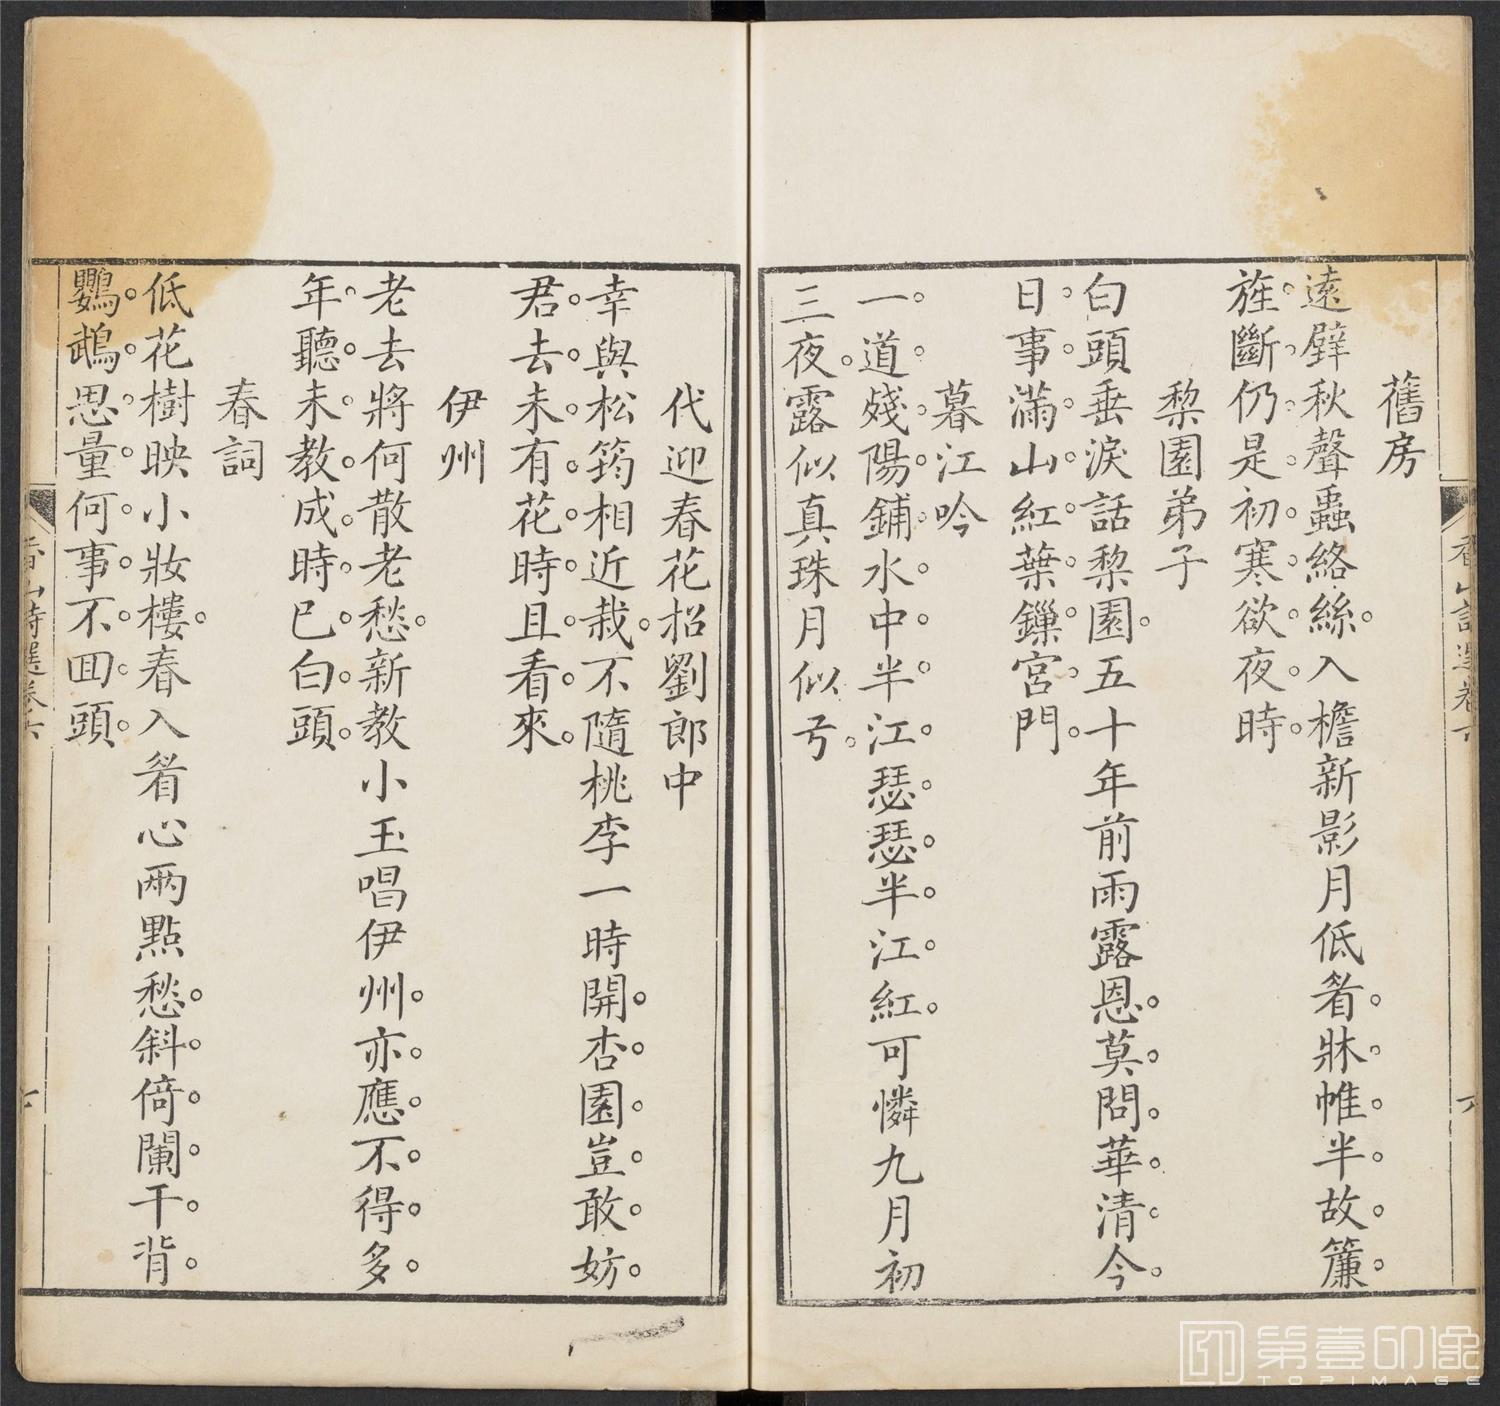 舊房
遠壁秋聲蟲絡絲入檐新影月低眉牀帷半故簾
旌斷仍是初寒欲夜時
梨園弟子
白頭垂淚話梨園五十年前雨露恩莫問華清今
日事滿山紅葉鏁宮門
暮江吟
一道殘陽鋪水中半江瑟瑟半江紅可憐九月初
三夜露似真珠月似弓
香山詩選卷六
六
代迎春花招劉郎中
幸與松筠相近栽不隨桃李一時開杏園豈敢妨
君去未有花時且看來
伊州
老去將何散老愁新教小玉唱伊州亦應不得多
年聽未教成時已白頭
春詞
低花樹映小妝樓春入眉心兩點愁斜倚闌干背
鸚鵡思量何事不回頭
香山詩選卷六
七
第壹印像
TOPIMAGE